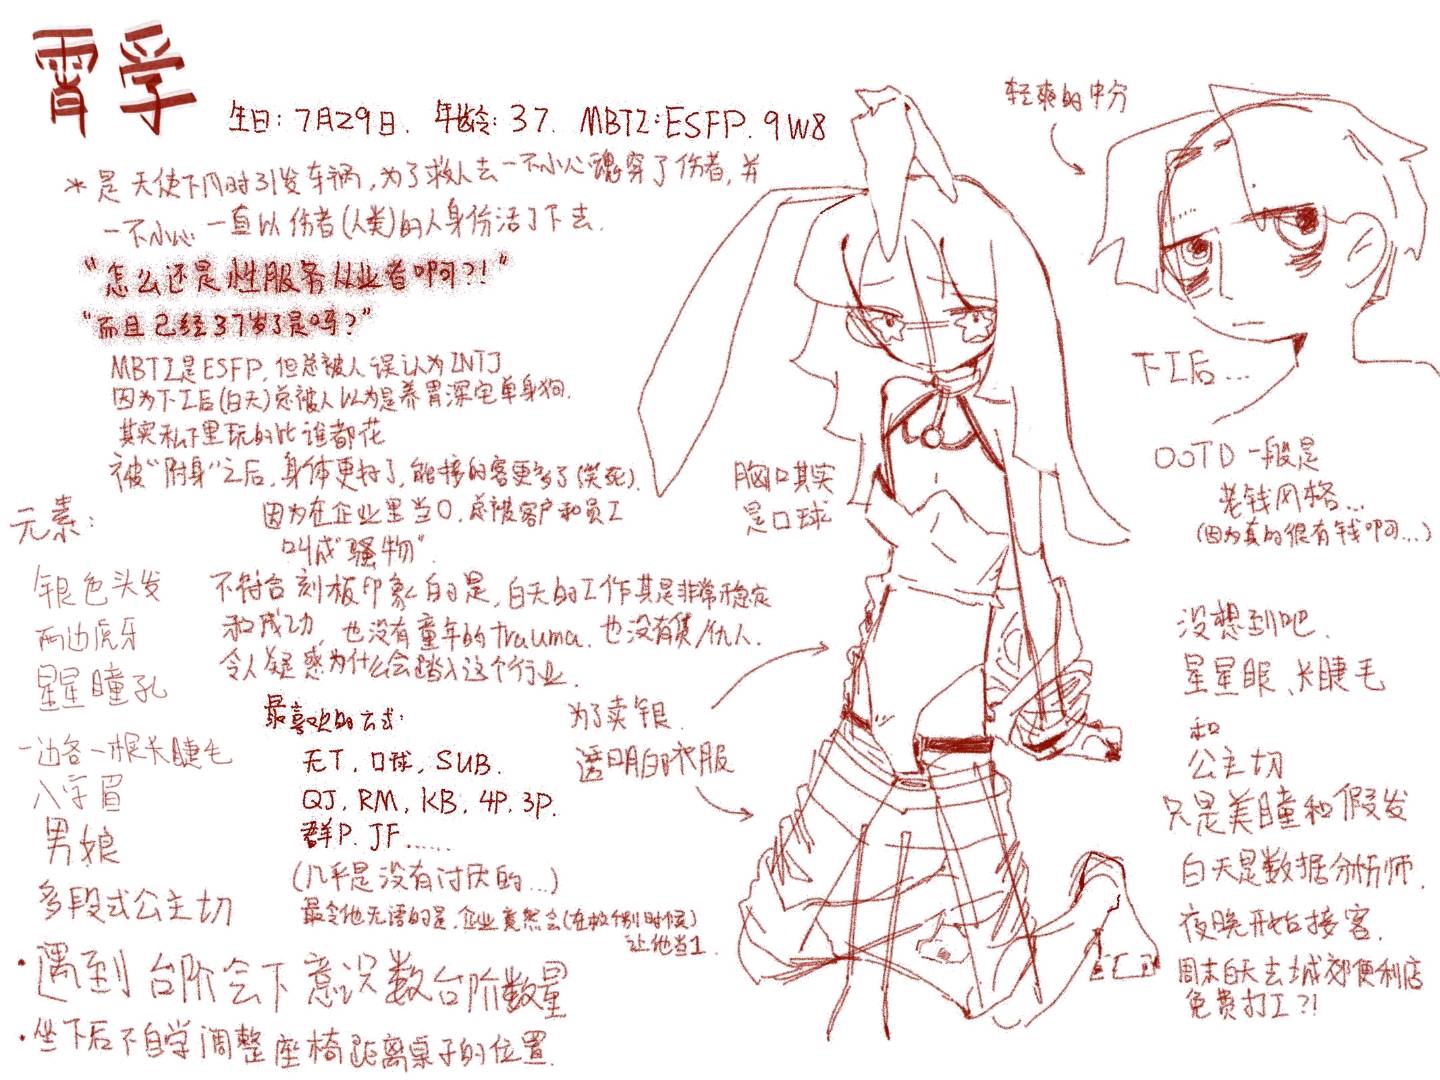 霄孚
生日：7月29日. 年龄：37. MBTI：ESFP. 9W8
*是天使下凡时引发车祸，为了救人去一不小心魂穿了伤者，并
一不小心一直以伤者(人类)的人身份活了下去.
“怎么还是性服务从业者啊?!”
“而且已经37岁了是吗?”
MBTI是ESFP，但总被人误认为INTJ
因为下工后(白天)总被人以为是养胃深宅单身狗.
其实私下里玩的比谁都花
被“附身”之后，身体更好了，能接的客更多了(笑死).
因为在企业里当0，总被客户和员工
叫成“骚物”.
不符合刻板印象的是，白天的工作其是非常稳定
和成功，也没有童年的trauma. 也没有债/仇人.
令人疑惑为什么会踏入这个行业.
最喜欢的方式：
无T，口球，SUB.
QJ，RM，KB，4P，3P.
群P. JF......
(几乎是没有讨厌的...)
最令他无语的是，企业竟然会(在极个别时候)
让他当1.
元素：
银色头发
两边虎牙
星星瞳孔
一边各一根长睫毛
八字眉
男娘
多段式公主切
·遇到台阶会下意识数台阶数量
·坐下后不自学调整座椅距离桌子的位置.
胸口其实
是口球
为了卖银.
透明的衣服
轻爽的中分
下工后...
OOTD一般是
老钱风格...
(因为真的很有钱啊...)
没想到吧.
星星眼、长睫毛
和
公主切
只是美瞳和假发
白天是数据分析师.
夜晚开始接客.
周末白天去城郊便利店
免费打工?!